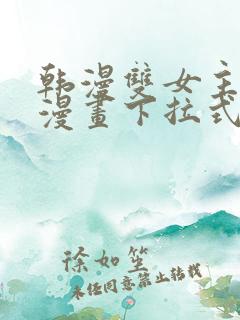 韩漫雙女主
漫畫下拉式
徐如笙
未经同意禁止转载